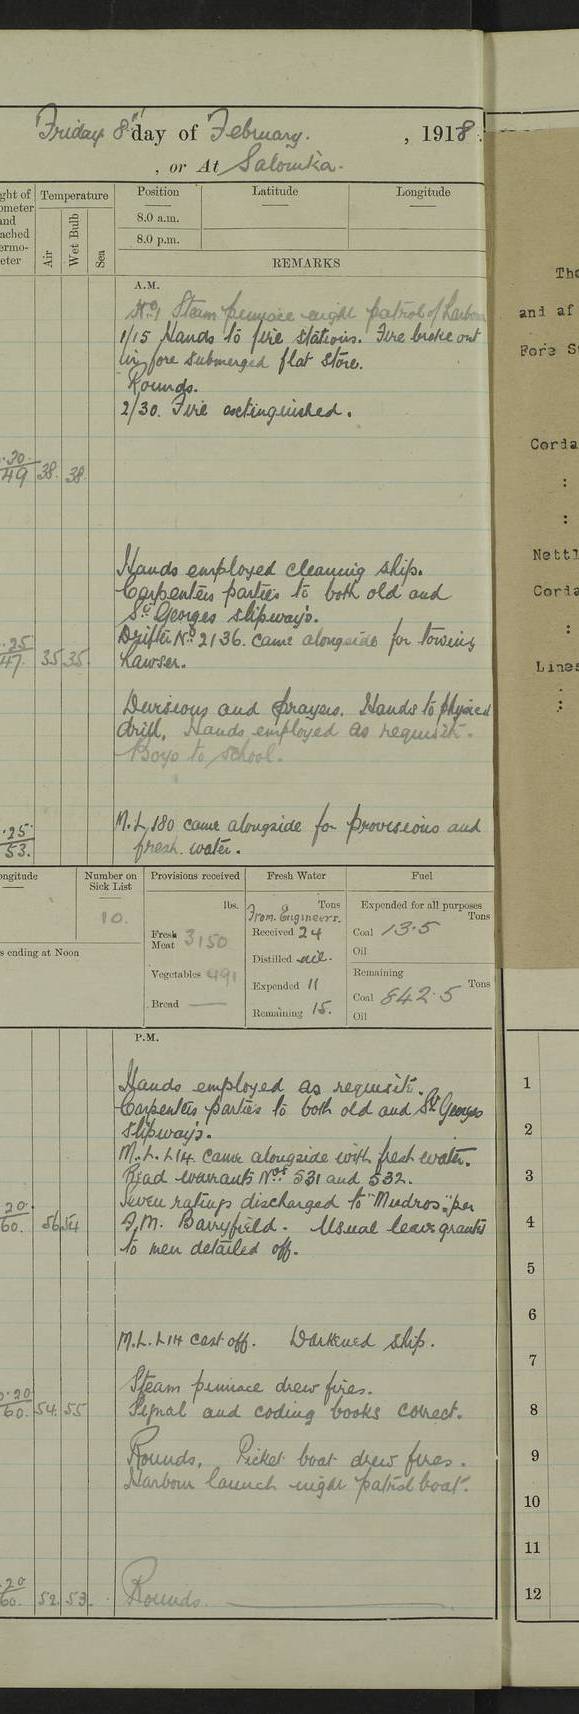 Friday 8th day of February. , 1918.
, or At Salonika.
ght of
ometer
and
ached
ermo-
eter
Temperature
Air
Wet Bulb
Sea
Position
Latitude
Longitude
8.0 a.m.
8.0 p.m.
REMARKS
A.M.
No. 1 Steam pinnace night patrol of Harbour
1/15 Hands to fire stations. Fire broke out
in fore submerged flat store.
Rounds.
2/30. Fire extinguished.
.30
49 38. 38.
Hands employed cleaning ship.
Carpenters parties to both old and
St Georges slipways.
Drifter No. 2136. came alongside for towing
hawser.
.25
47. 35 35.
Divisions and prayers. Hands to physical
drill. Hands employed as requisite.
Boys to school.
M.L 180 came alongside for provisions and
fresh water.
.25
53.
ongitude
Number on
Sick List
10.
s ending at Noon
Provisions received
lbs.
Fresh
Meat 3150
Vegetables 491
Bread —
Fresh Water
Tons
From Engineers.
Received 24
Distilled nil.
Expended 11
Remaining 15.
Fuel
Expended for all purposes
Tons
Coal 13.5
Oil
Remaining
Tons
Coal 842.5
Oil
P.M.
Hands employed as requisite.
Carpenters parties to both old and St Georges
slipways.
M.L. L14 came alongside with fresh water.
Read warrants Nos 531 and 532.
Seven ratings discharged to "Mudros" per
F.M. Barryfield. Usual leave granted
to men detailed off.
20
60. 56 54
M.L. L14 cast off. Darkened ship.
Steam pinnace drew fires.
Signal and coding books correct.
.20
60. 54. 55
Rounds. Picket boat drew fires.
Harbour launch night patrol boat.
.20
60. 52. 53.
Rounds.
The
and af
Fore S
Corda
:
:
Nettl
Corda
:
Lines
:
:
1
2
3
4
5
6
7
8
9
10
11
12